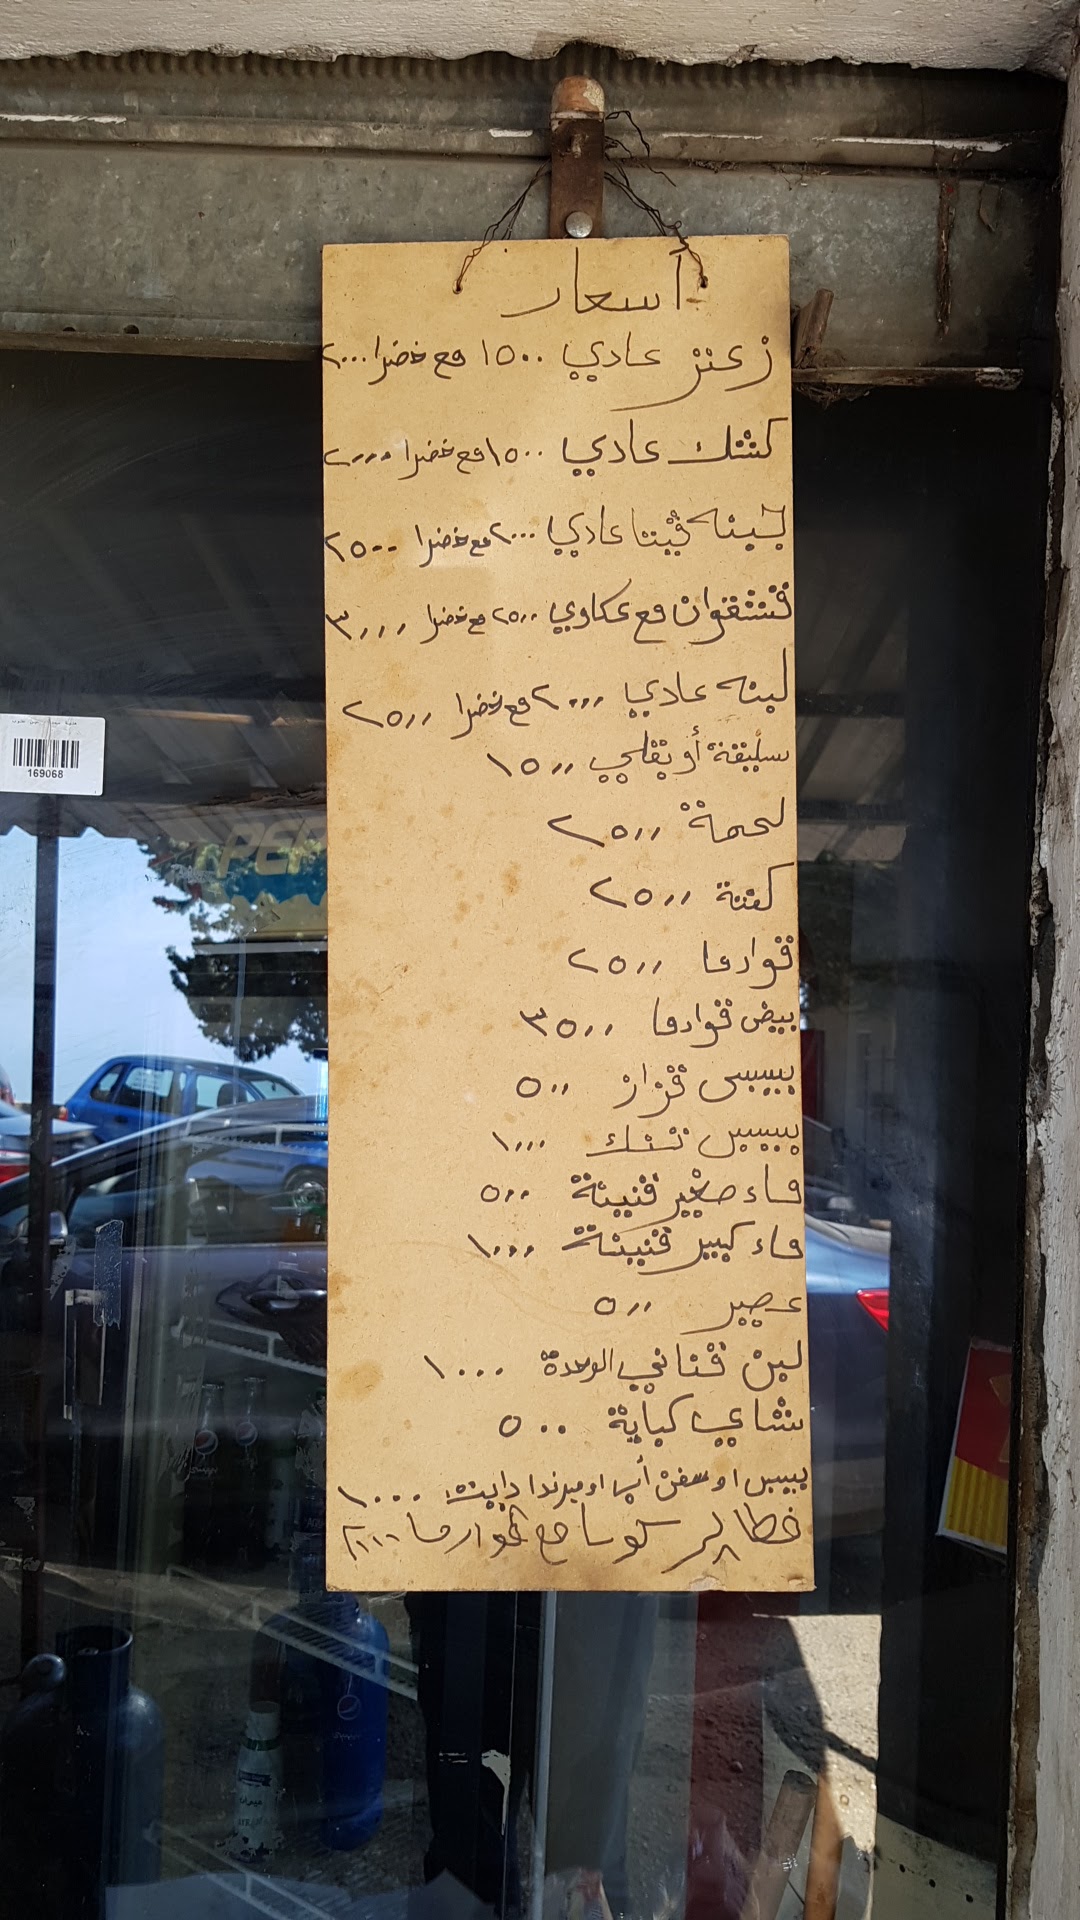 أسعار
زعتر عادي ١٥٠٠ مع خضرا ٢٠٠٠
كشك عادي ١٥٠٠ مع خضرا ٢٠٠٠
جبنه فيتا عادي ٢٠٠٠ مع خضرا ٢٥٠٠
قشقوان مع عكاوي ٢٥٠٠ مع خضرا ٣٠٠٠
لبنه عادي ٢٠٠٠ مع خضرا ٢٥٠٠
سليقة أو بقلي ١٥٠٠
لحمة ٢٥٠٠
كفتة ٢٥٠٠
قوارما ٢٥٠٠
بيض قوارما ٣٥٠٠
بيبسي قزاز ٥٠٠
بيبسي تنك ١٠٠٠
ماء صغير قنينة ٥٠٠
ماء كبير قنينة ١٠٠٠
عصير ٥٠٠
لبن قناني الوحدة ١٠٠٠
شاي كباية ٥٠٠
بيبسي او سفن أب او ميرندا دايت ١٠٠٠
كوسا مع قوارما
169068
PEP